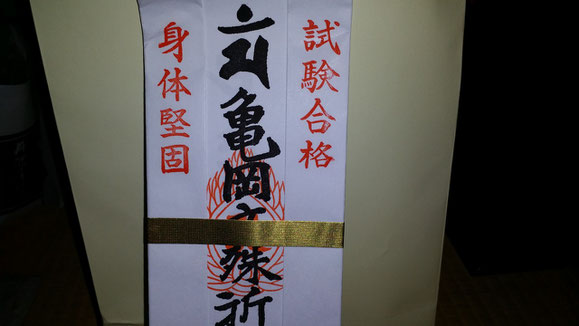 試験合格
亀岡文殊祈
身体堅固